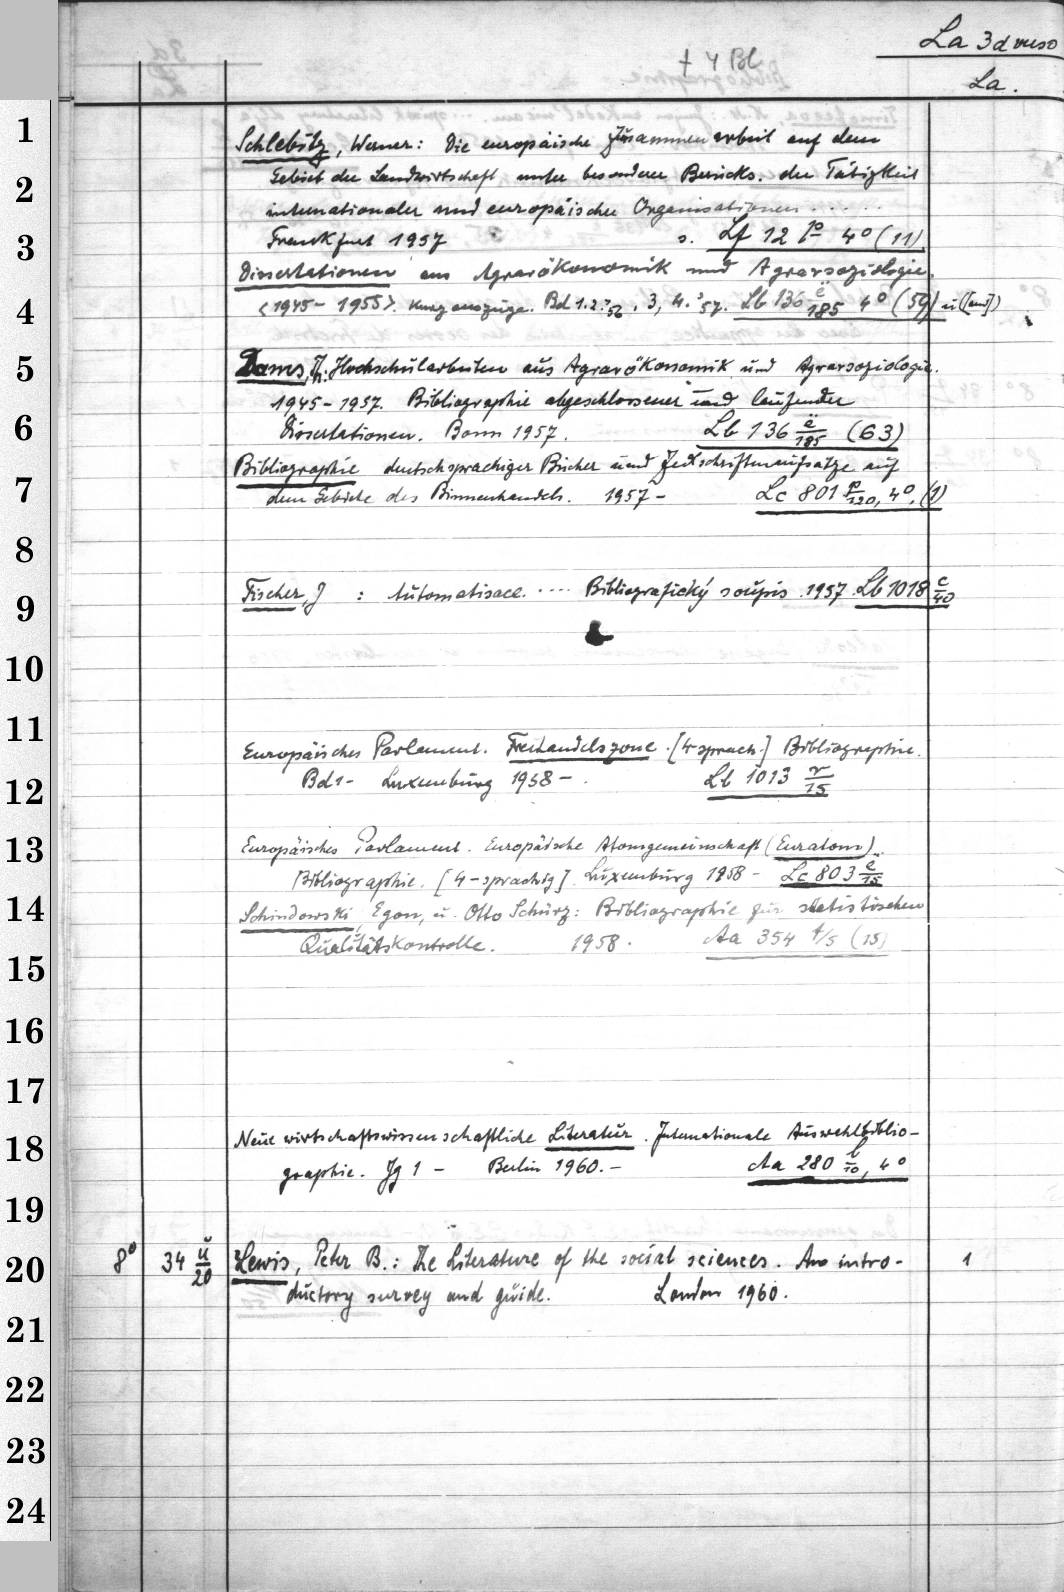 La 3d verso
+ 4 Bl
La.
1
Schlebitz, Werner: Die europäische Zusammenarbeit auf dem
2
Gebiet der Landwirtschaft unter besonderer Berücks. der Tätigkeit
internationaler und europäischer Organisationen . . . . .
3
Frankfurt 1957 s. Lf 12 4° (11)
Dissertationen aus Agrarökonomik und Agrarsoziologie.
4
<1945 - 1955>. Kurzauszüge. Bd 1.2.'56, 3, 4.'57. Lb 136 ë/185 4° (59) u ([und])
5
Dams, Th. Hochschularbeiten aus Agrarökonomik und Agrarsoziologie.
1945 - 1957. Bibliographie abgeschlossener und laufender
6
Dissertationen. Bonn 1957. Lb 136 ë/185 (63)
Bibliographie deutschsprachiger Bücher und Zeitschriftenaufsätze auf
7
dem Gebiete des Binnenhandels. 1957 - Lc 801 p/120, 4°, (1)
8
9
Fischer, J : Automatisace. .... Bibliografický soupis. 1957. Lb 1018 c/40
10
11
Europäisches Parlament. Freihandelszone. [4 sprach.] Bibliographie.
12
Bd 1 - Luxemburg 1958 - . Lb 1013 r/15
13
Europäisches Parlament. Europäische Atomgemeinschaft (Euratom)..
Bibliographie. [4-sprachig]. Luxemburg 1958 - Lc 803 e/15
14
Schindowski, Egon, u. Otto Schürz: Bibliographie zur statistischen
Qualitätskontrolle. 1958. Aa 354 t/5 (15)
15
16
17
18
Neue wirtschaftswissenschaftliche Literatur. Internationale Auswahlbiblio-
graphie. Jg 1 - Berlin 1960. - Aa 280 l/10, 4°
19
20
8° 34 ü/20 Lewis, Peter B.: The Literature of the social sciences. An intro- 1
ductory survey and guide. London 1960.
21
22
23
24